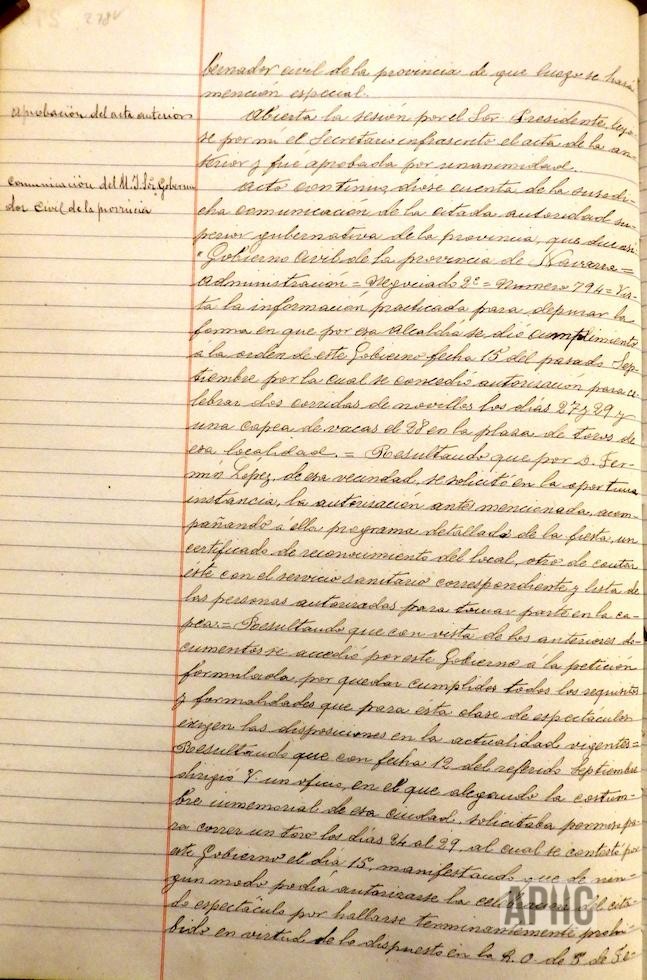 278v
bernador civil de la provincia de que luego se hará
mención especial.
Aprobación del acta anterior
Abierta la sesión por el Sor. Presidente, leyo-
se por mi el Secretario infrascrito el acta de la an-
terior y fue aprobada por unanimidad.
Comunicación del M. I. Sor. Goberna
dor Civil de la provincia
Acto continuo, diose cuenta de la susodi-
cha comunicación de la citada autoridad su-
perior gubernativa de la provincia, que dice asi
"Gobierno Civil de la provincia de Navarra =
Administración = Negociado 2º = Numero 794 = Vis-
ta la información practicada para depurar la
forma en que por esa Alcaldía se dió cumplimiento
á la orden de este Gobierno fecha 15 del pasado Sep-
tiembre por la cual se concedió autorización para ce-
lebrar dos corridas de novillos los días 27 y 29 y
una capea de vacas el 28 en la plaza de toros de
esa localidad. = Resultando que por D. Fer-
mín Lopez, de esa vecindad, se solicitó en la oportuna
instancia, la autorización antes mencionada, acom-
pañando á ella programa detallado de la fiesta, un
certificado de reconocimiento del local, otro de contar
éste con el servicio sanitario correspondiente y lista de
las personas autorizadas para tomar parte en la ca-
pea. = Resultando que con vista de los anteriores do-
cumentos se accedió por este Gobierno á la petición
formulada, por quedar cumplidos todos los requisitos
y formalidades que para esta clase de espectáculos
exigen las disposiciones en la actualidad vigentes =
Resultando que con fecha 12 del referido Septiembre
dirigió V. un oficio, en el que alegando la costum-
bre inmemorial de esa ciudad, solicitaba permiso pa-
ra correr un toro los días 24 al 29, al cual se contestó por
este Gobierno el día 15, manifestando que de nin-
gun modo podía autorizarse la celebración del cita-
do espectáculo por hallarse terminantemente prohi-
bido en virtud de lo dispuesto en la R. O. de 5 de Fe-
APHC